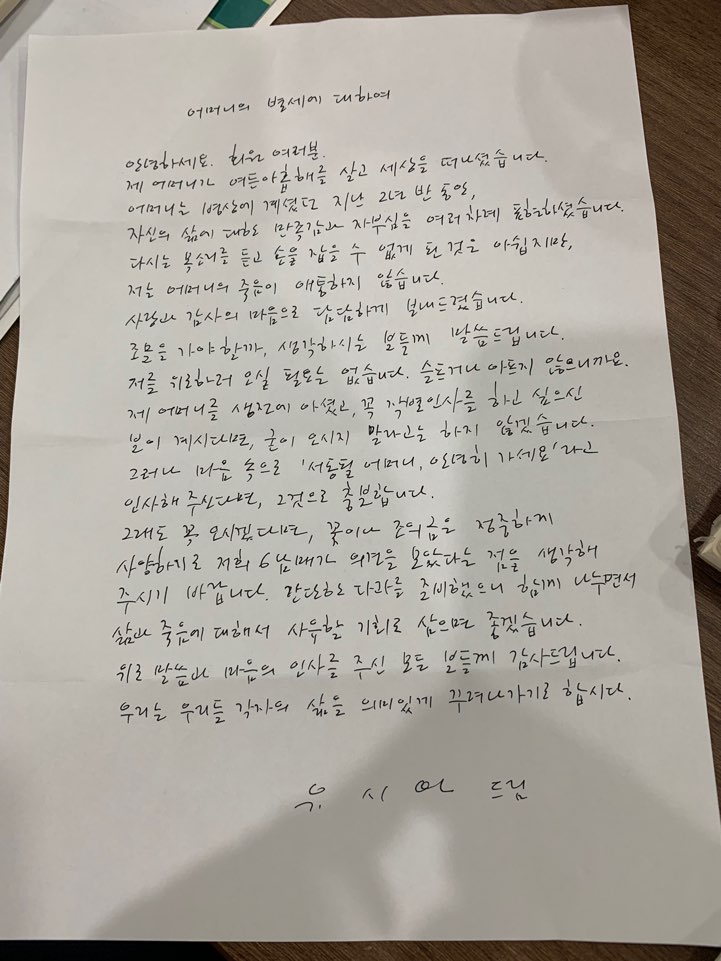 어머니의 별세에 대하여
안녕하세요. 회원 여러분.
제 어머니가 여든아홉해를 살고 세상을 떠나셨습니다.
어머니는 병상에 계셨던 지난 2년 반 동안,
자신의 삶에 대한 만족감과 자부심을 여러차례 표현하셨습니다.
다시는 목소리를 듣고 손을 잡을 수 없게 된 것은 아쉽지만,
저는 어머니의 죽음이 애통하지 않습니다.
사랑과 감사의 마음으로 담담하게 보내드렸습니다.
조문을 가야할까, 생각하시는 분들께 말씀드립니다.
저를 위로하러 오실 필요는 없습니다. 슬프거나 아프지 않으니까요.
제 어머니를 생전에 아셨고, 꼭 작별인사를 하고 싶으신
분이 계시다면, 굳이 오시지 말라고는 하지 않겠습니다.
그러나 마음 속으로 '서동필 어머니, 안녕히 가세요'라고
인사해 주신다면, 그것으로 충분합니다.
그래도 꼭 오시겠다면, 꽃이나 조의금은 정중하게
사양하기로 저희 6남매가 의견을 모았다는 점을 생각해
주시기 바랍니다. 간단한 다과를 준비했으니 함께 나누면서
삶과 죽음에 대해서 사유할 기회로 삼으면 좋겠습니다.
위로 말씀과 마음의 인사를 주신 모든 분들께 감사드립니다.
우리는 우리들 각자의 삶을 의미있게 꾸려나가기로 합시다.
유 시 민 드림